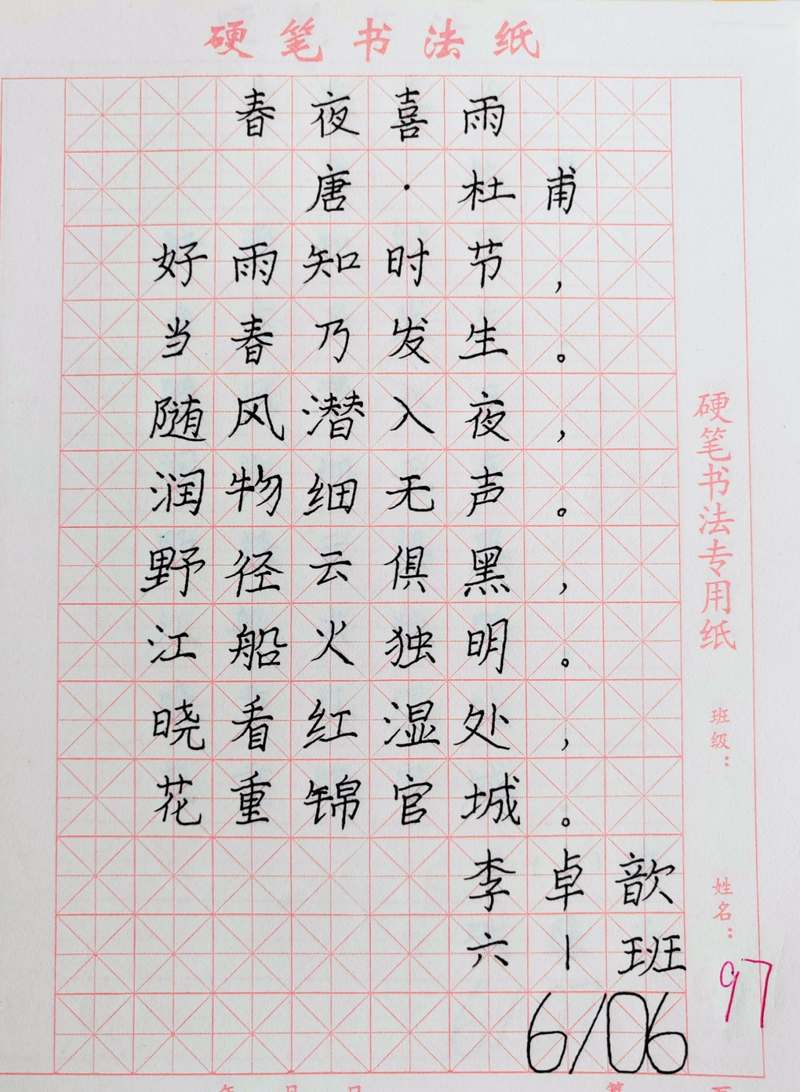 硬笔书法纸
春夜喜雨
唐·杜甫
好雨知时节，
当春乃发生。
随风潜入夜，
润物细无声。
野径云俱黑，
江船火独明。
晓看红湿处，
花重锦官城。
李卓歆
六1班
6/06
硬笔书法专用纸
班级：
姓名：
97